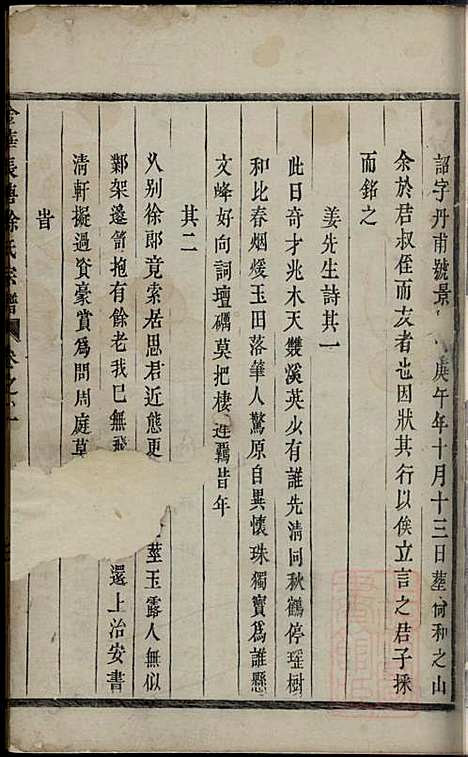 詔字丹甫號景 庚午年十月十三日塟 和之山
余於君叔侄而友者也因狀其行以俟立言之君子採
而銘之
姜先生詩其一
此日奇才兆木天雙溪英少有誰先淸同秋鶴停瑶樹
和比春烟煖玉田落筆人驚原自異懷珠獨寶爲誰懸
文峰好向詞壇礪莫把棲遲羈昔年
其二
久别徐郞竟索居思君近態更 莖玉露人無似
鄴架邊箭抱有餘老我已無飛 還上治安書
淸軒擬過資豪賞爲問周庭草
昔
金華長塘徐氏宗譜 卷之